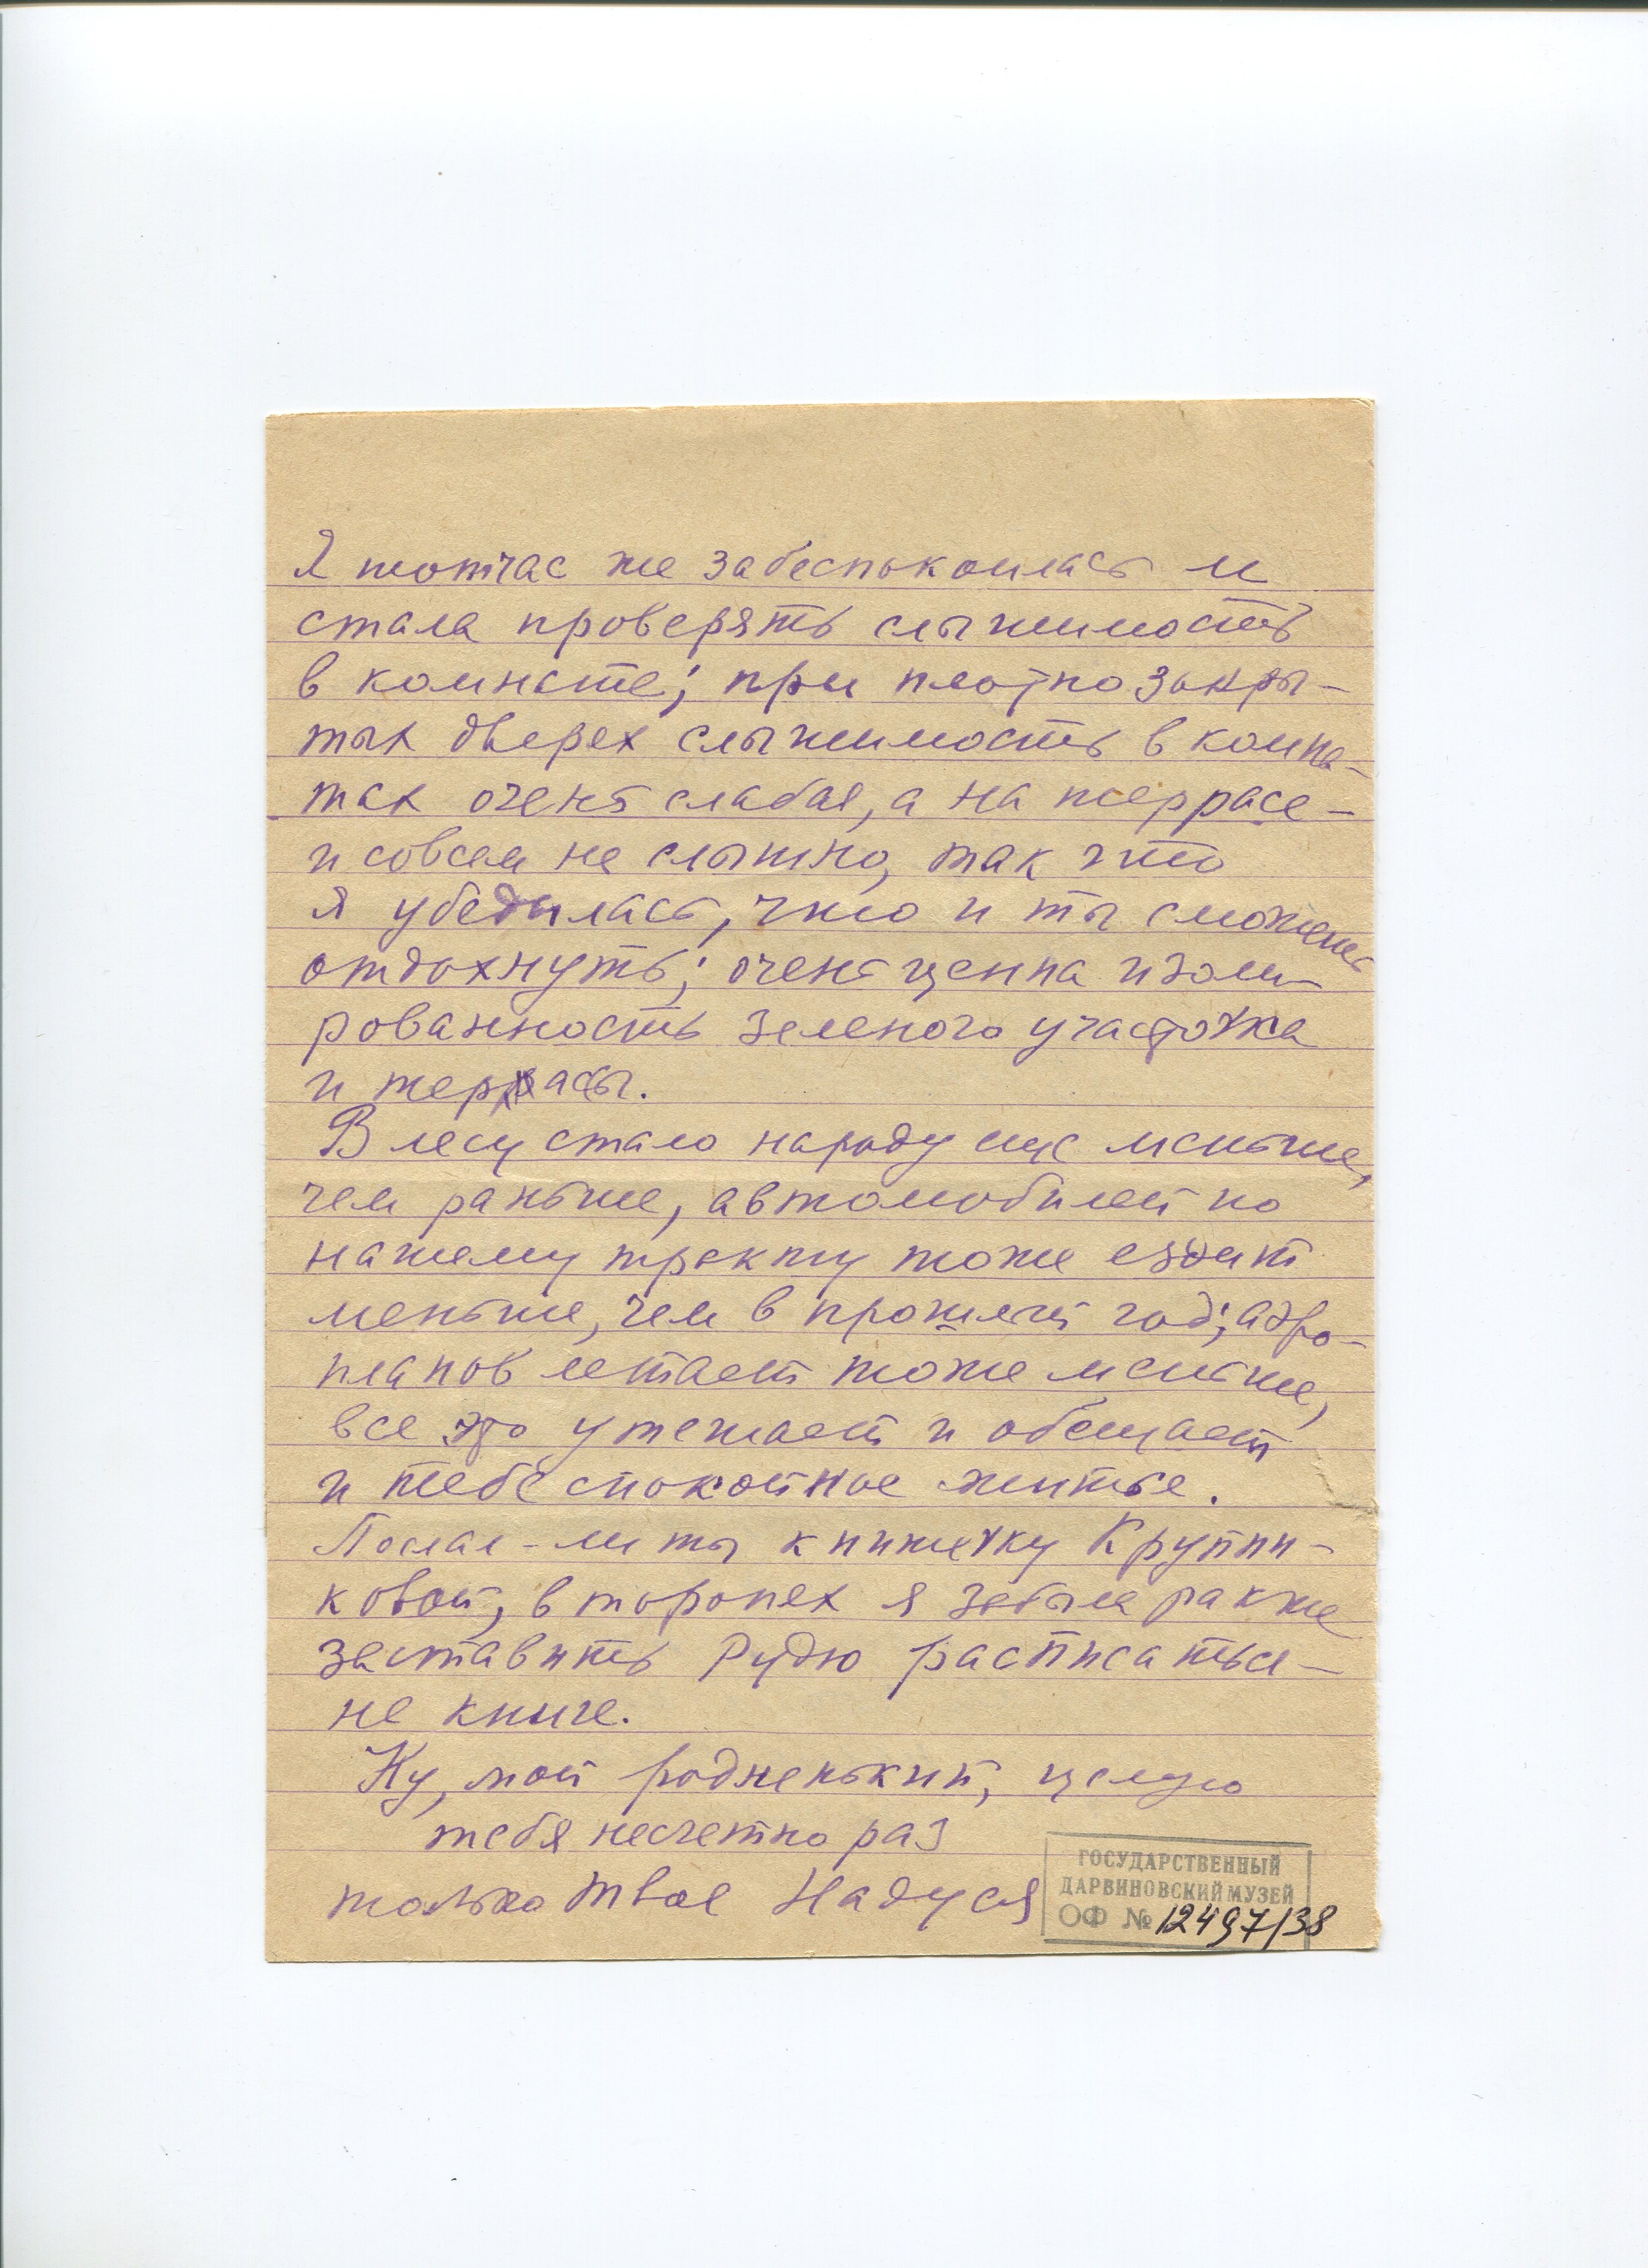 Я тотчас же забеспокоилась и
стала проверять слышимость
в комнате; при плотно закры-
тых дверях слышимость в комна-
тах очень слабая, а на террасе –
и совсем не слышно, так что
я убедилась, что и ты сможешь
отдохнуть; очень ценна изоли-
рованность зеленого участочка
и террасы.
В лесу стало народу еще меньше,
чем раньше, автомобилей по
нашему тракту тоже ездит
меньше, чем в прошлый год; аэро-
планов летает тоже меньше,
все это утешает и обещает
и тебе спокойное житье.
Послал-ли ты книжечку Крупи-
ковой, в торопях я забыла
заставить Рудю расписаться –
не книге.
Ну, мой родненький, целую
тебя несчетно раз
только твоя Надуся
ГОСУДАРСТВЕННЫЙ
ДАРВИНОВСКИЙ МУЗЕЙ
ОФ № 12497/38